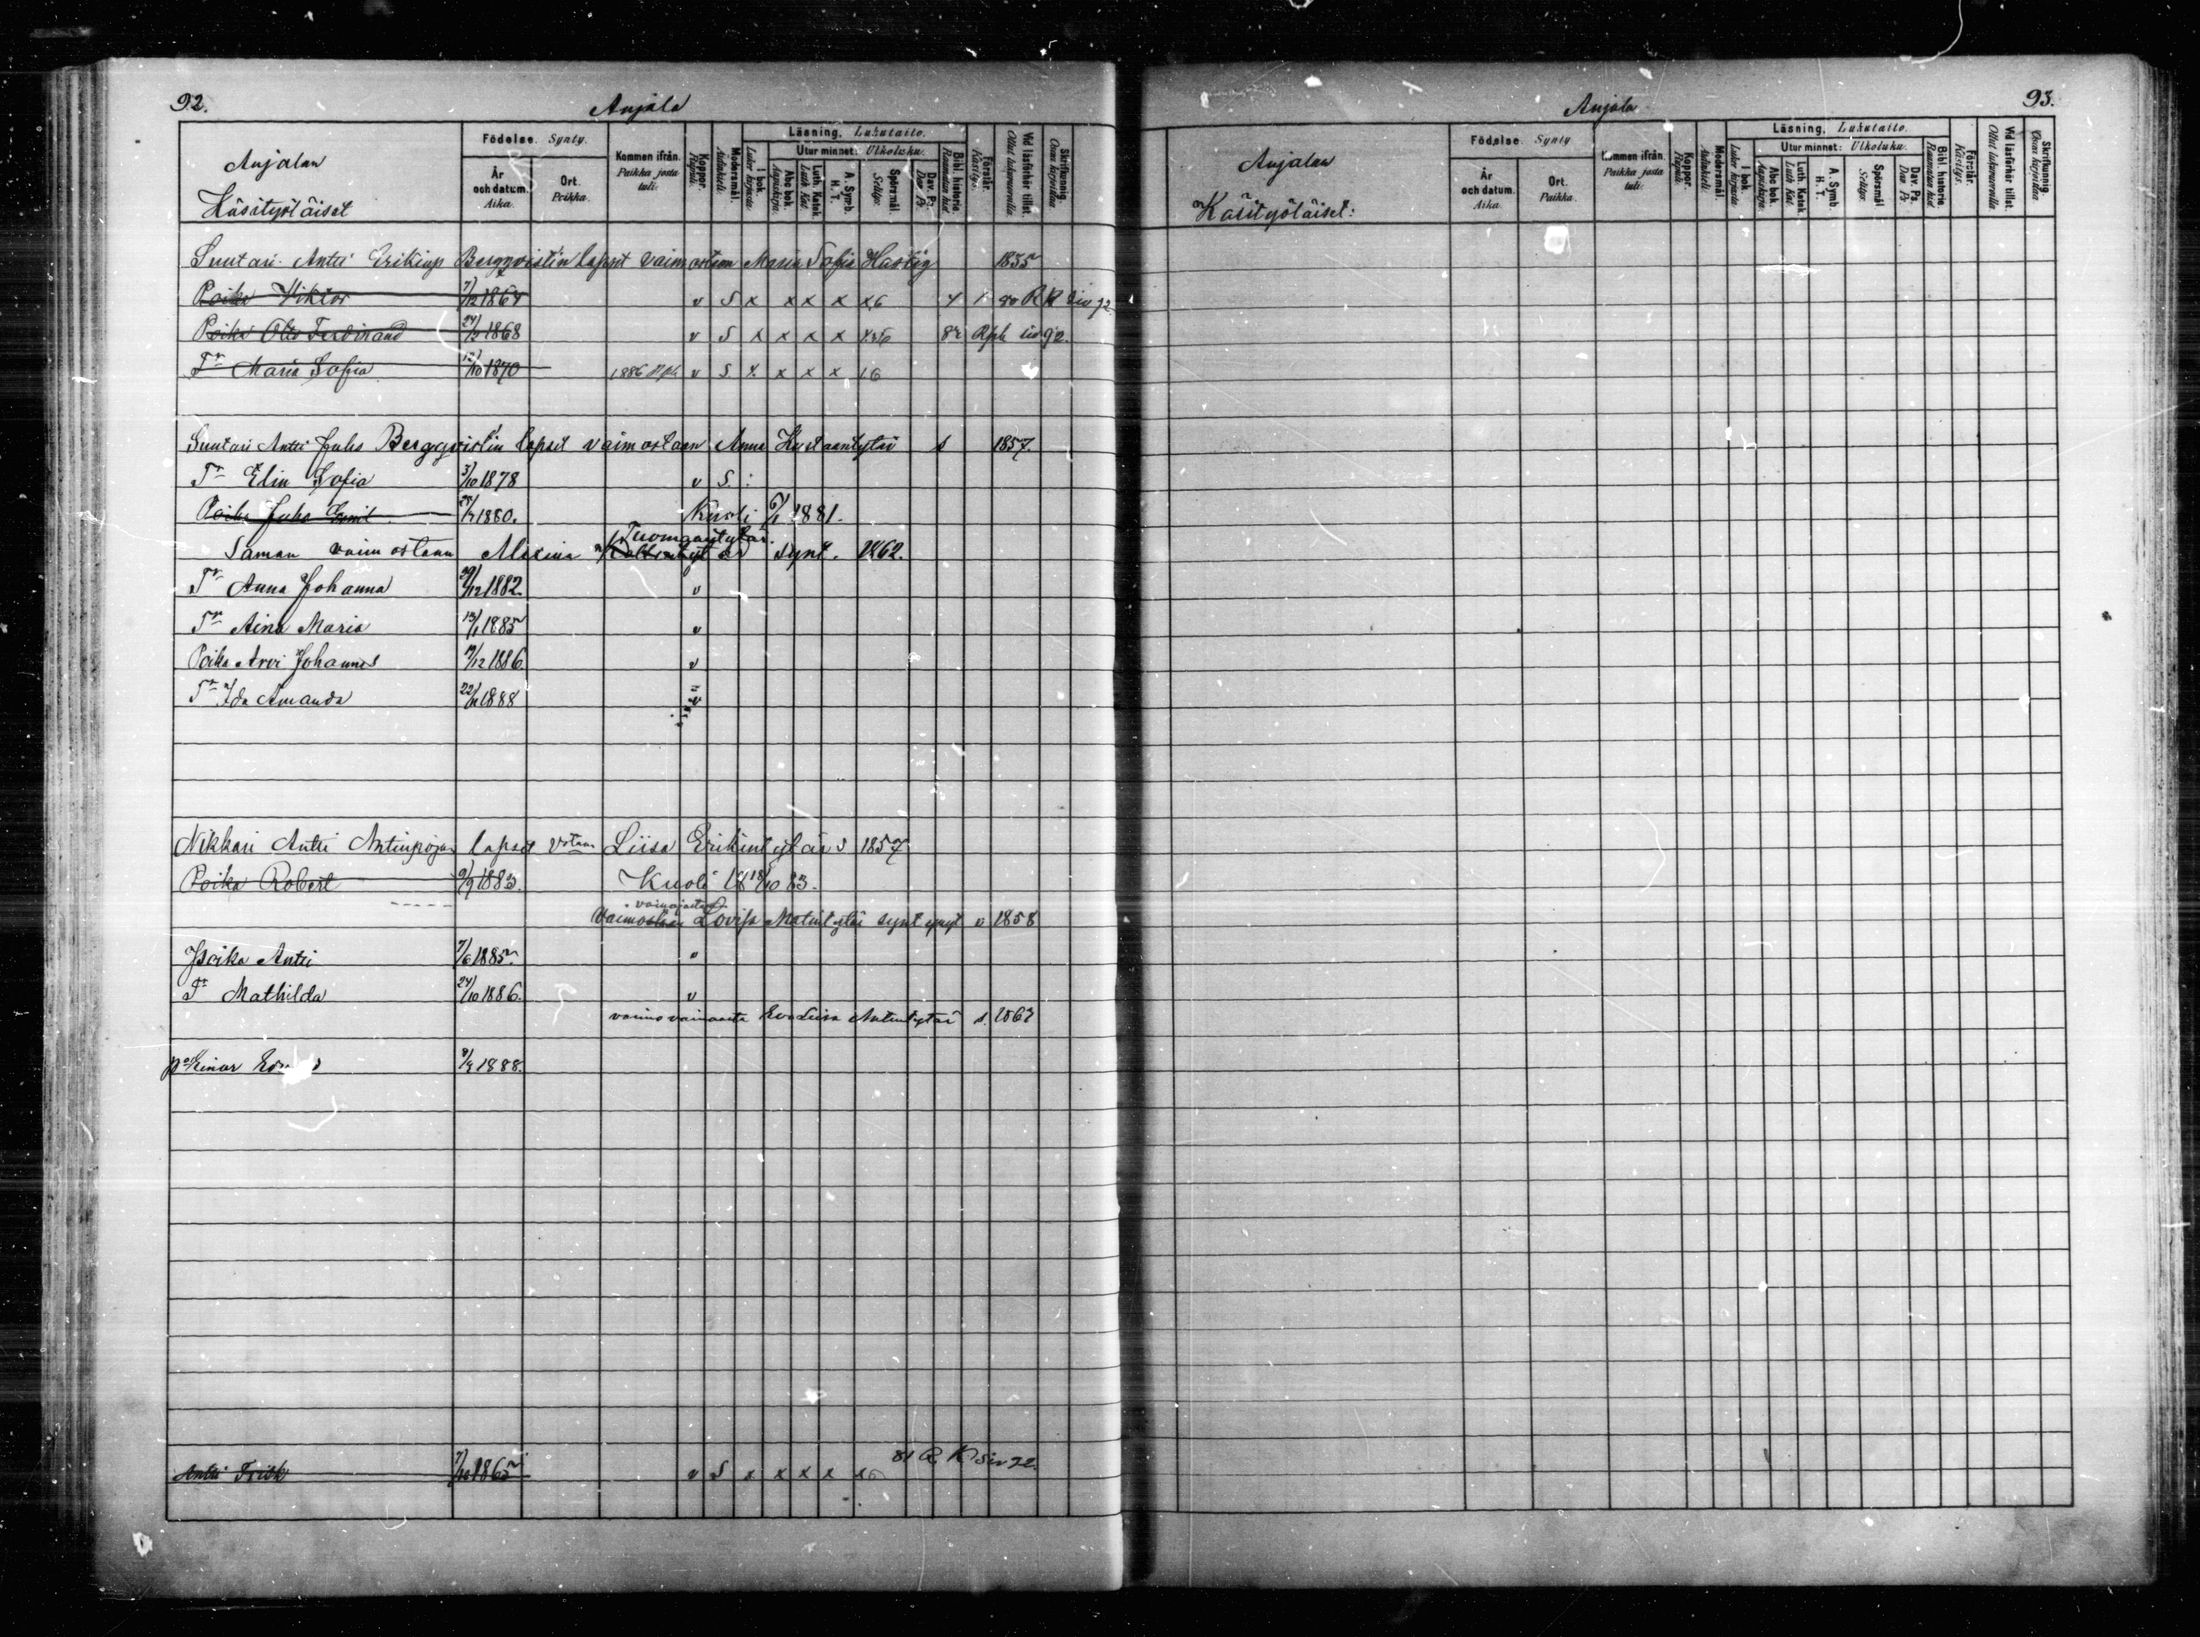 92. Anjala
Anjalan
Käsityöläiset
Födelse. Synty.
År och datum. Aika.
Ort. Paikka.
Kommen ifrån. Paikka josta tuli:
Koppor. Rupuli.
Modersmål. Äidinkieli.
Läsning. Lukutaito.
I bok. Lukee kirjasta.
Utur minnet: Ulkoluku.
Abc bok. Aapiskirja.
Luth. Katek. Luth Kat.
A. Symb. H. T.
Spörsmål. Selitys.
Dav. Ps. Dav. Ps.
Bibl. historia. Raamatun hist.
Förstår. Käsitys.
Vid läsförhör tillst. Ollut lukuvuorolla.
Skrifkunnig. Osaa kirjoittaa
Suutari Antti Erikinp Bergqvistin lapset vaimostaan Maria Sofia Hastig 1835
Poika Viktor 7/12 1864 v S x x x x x6 4 1 80 R K siv 92
Poika Otto Ferdinand 24/2 1868 v S x x x x 82 Rph siv 92.
Tr Maria Sofia 12/10 1870 1886 v S. x x x x 16
Suutari Antti Juho Bergqvistin lapset vaimostaan Anna Kustaantytär s 1857.
Tr Elin Sofia 3/10 1878 v S.
Poika Juho Emil 1880. Kuoli 6/1 1881.
Saman vaimostaan Maria Tuomaantytär synt. 1862.
Tr Anna Johanna 29/12 1882 v
Tr Aina Maria 13/1 1885 v
Poika Arvi Johannes 19/12 1886 v
Tr Ida Amanda 22/11 1888 v
Nikkari Antti Antinpojan lapset vstaan Liisa Erikintytär s 1857
Poika Robert 9/9 1883. Kuoli 18/10 83.
vaimostaan Lovisa Matintytär synt v 1858
Poika Antti 7/6 1885. v
Tr Mathilda 24/10 1886. v
vaimo vainaasta Eva Liisa Antintytär s. 1863
po Einar 8/9 1888.
Antti Erik 7/10 1865 v S x x x x x6 81 R. K siv 92.
Anjala 93.
Anjalan
Käsityöläiset:
Födelse. Synty
År och datum. Aika.
Ort. Paikka.
Kommen ifrån. Paikka josta tuli:
Koppor. Rupuli.
Modersmål. Äidinkieli.
Läsning. Lukutaito.
I bok. Lukee kirjasta
Utur minnet: Ulkoluku.
Abc bok. Aapiskirja.
Luth. Katek. Luth Kat.
A. Symb. H. T.
Spörsmål Selitys.
Dav. Ps. Dav Ps.
Bibl. historia. Raamatun hist.
Förstår. Käsitys.
Vid läsförhör tillst. Ollut lukuvuorolla.
Skrifkunnig. Osaa kirjoittaa